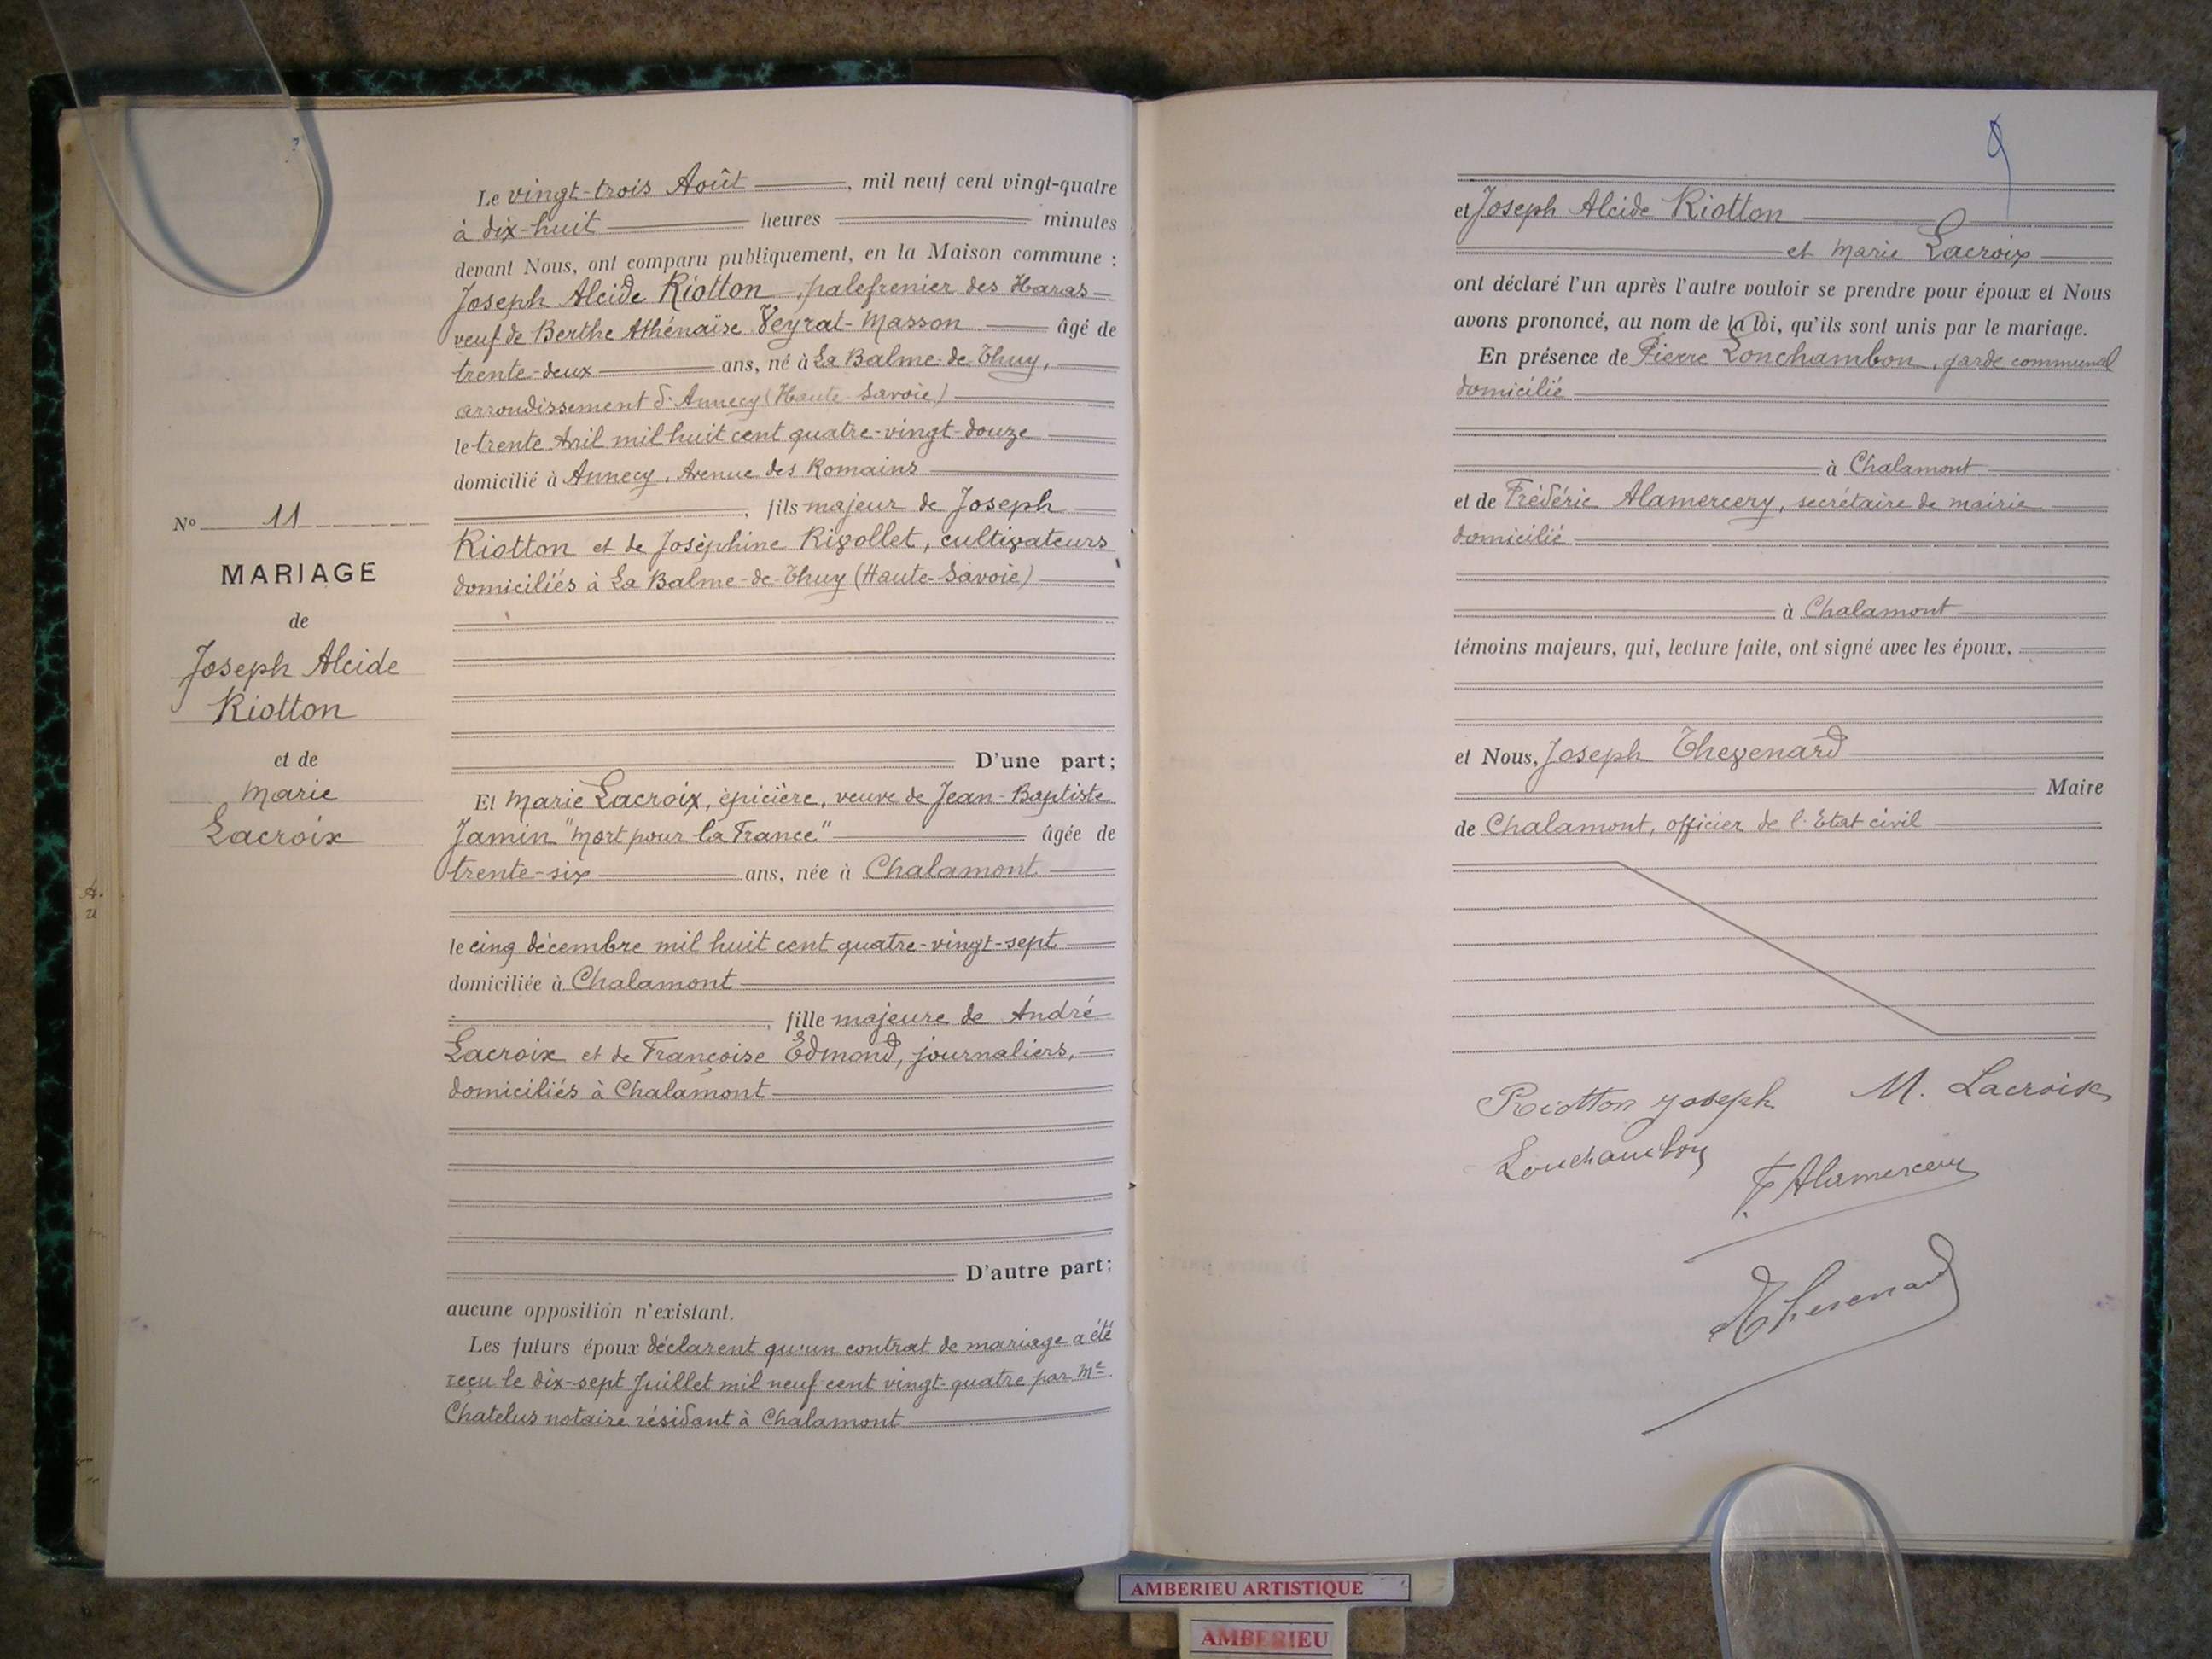 Le vingt-trois Août, mil neuf cent vingt-quatre
à dix-huit heures minutes
devant Nous, ont comparu publiquement, en la Maison commune :
Joseph Alcide Riotton, palefrenier des Haras
veuf de Berthe Athénaïse Veyrat-Masson âgé de
trente-deux ans, né à La Balme-de-Thuy,
arrondissement d'Annecy (Haute-Savoie)
le trente Avril mil huit cent quatre-vingt-douze
domicilié à Annecy, Avenue des Romains
, fils majeur de Joseph
Riotton et de Joséphine Rivollet, cultivateurs
domiciliés à La Balme-de-Thuy (Haute-Savoie)
No 11
MARIAGE
de
Joseph Alcide
Riotton
et de
Marie
Lacroix
D'une part;
Et Marie Lacroix, épicière, veuve de Jean-Baptiste
Jamin "Mort pour la France" âgée de
trente-six ans, née à Chalamont
le cinq décembre mil huit cent quatre-vingt-sept
domiciliée à Chalamont
, fille majeure de André
Lacroix et de Françoise Edmond, journaliers,
domiciliés à Chalamont
D'autre part;
aucune opposition n'existant.
Les futurs époux déclarent qu'un contrat de mariage a été
reçu le dix-sept Juillet mil neuf cent vingt-quatre par Me
Chatelus notaire résidant à Chalamont
et Joseph Alcide Riotton
et Marie Lacroix
ont déclaré l'un après l'autre vouloir se prendre pour époux et Nous
avons prononcé, au nom de la loi, qu'ils sont unis par le mariage.
En présence de Pierre Lonchambon, garde communal
domicilié
à Chalamont
et de Frédéric Alamercery, secrétaire de mairie
domicilié
à Chalamont
témoins majeurs, qui, lecture faite, ont signé avec les époux.
et Nous, Joseph Thevenard
Maire
de Chalamont, officier de l'Etat civil
Riotton Joseph M. Lacroix
Lonchambon
F. Alamercery
Thevenard
AMBERIEU ARTISTIQUE
AMBERIEU